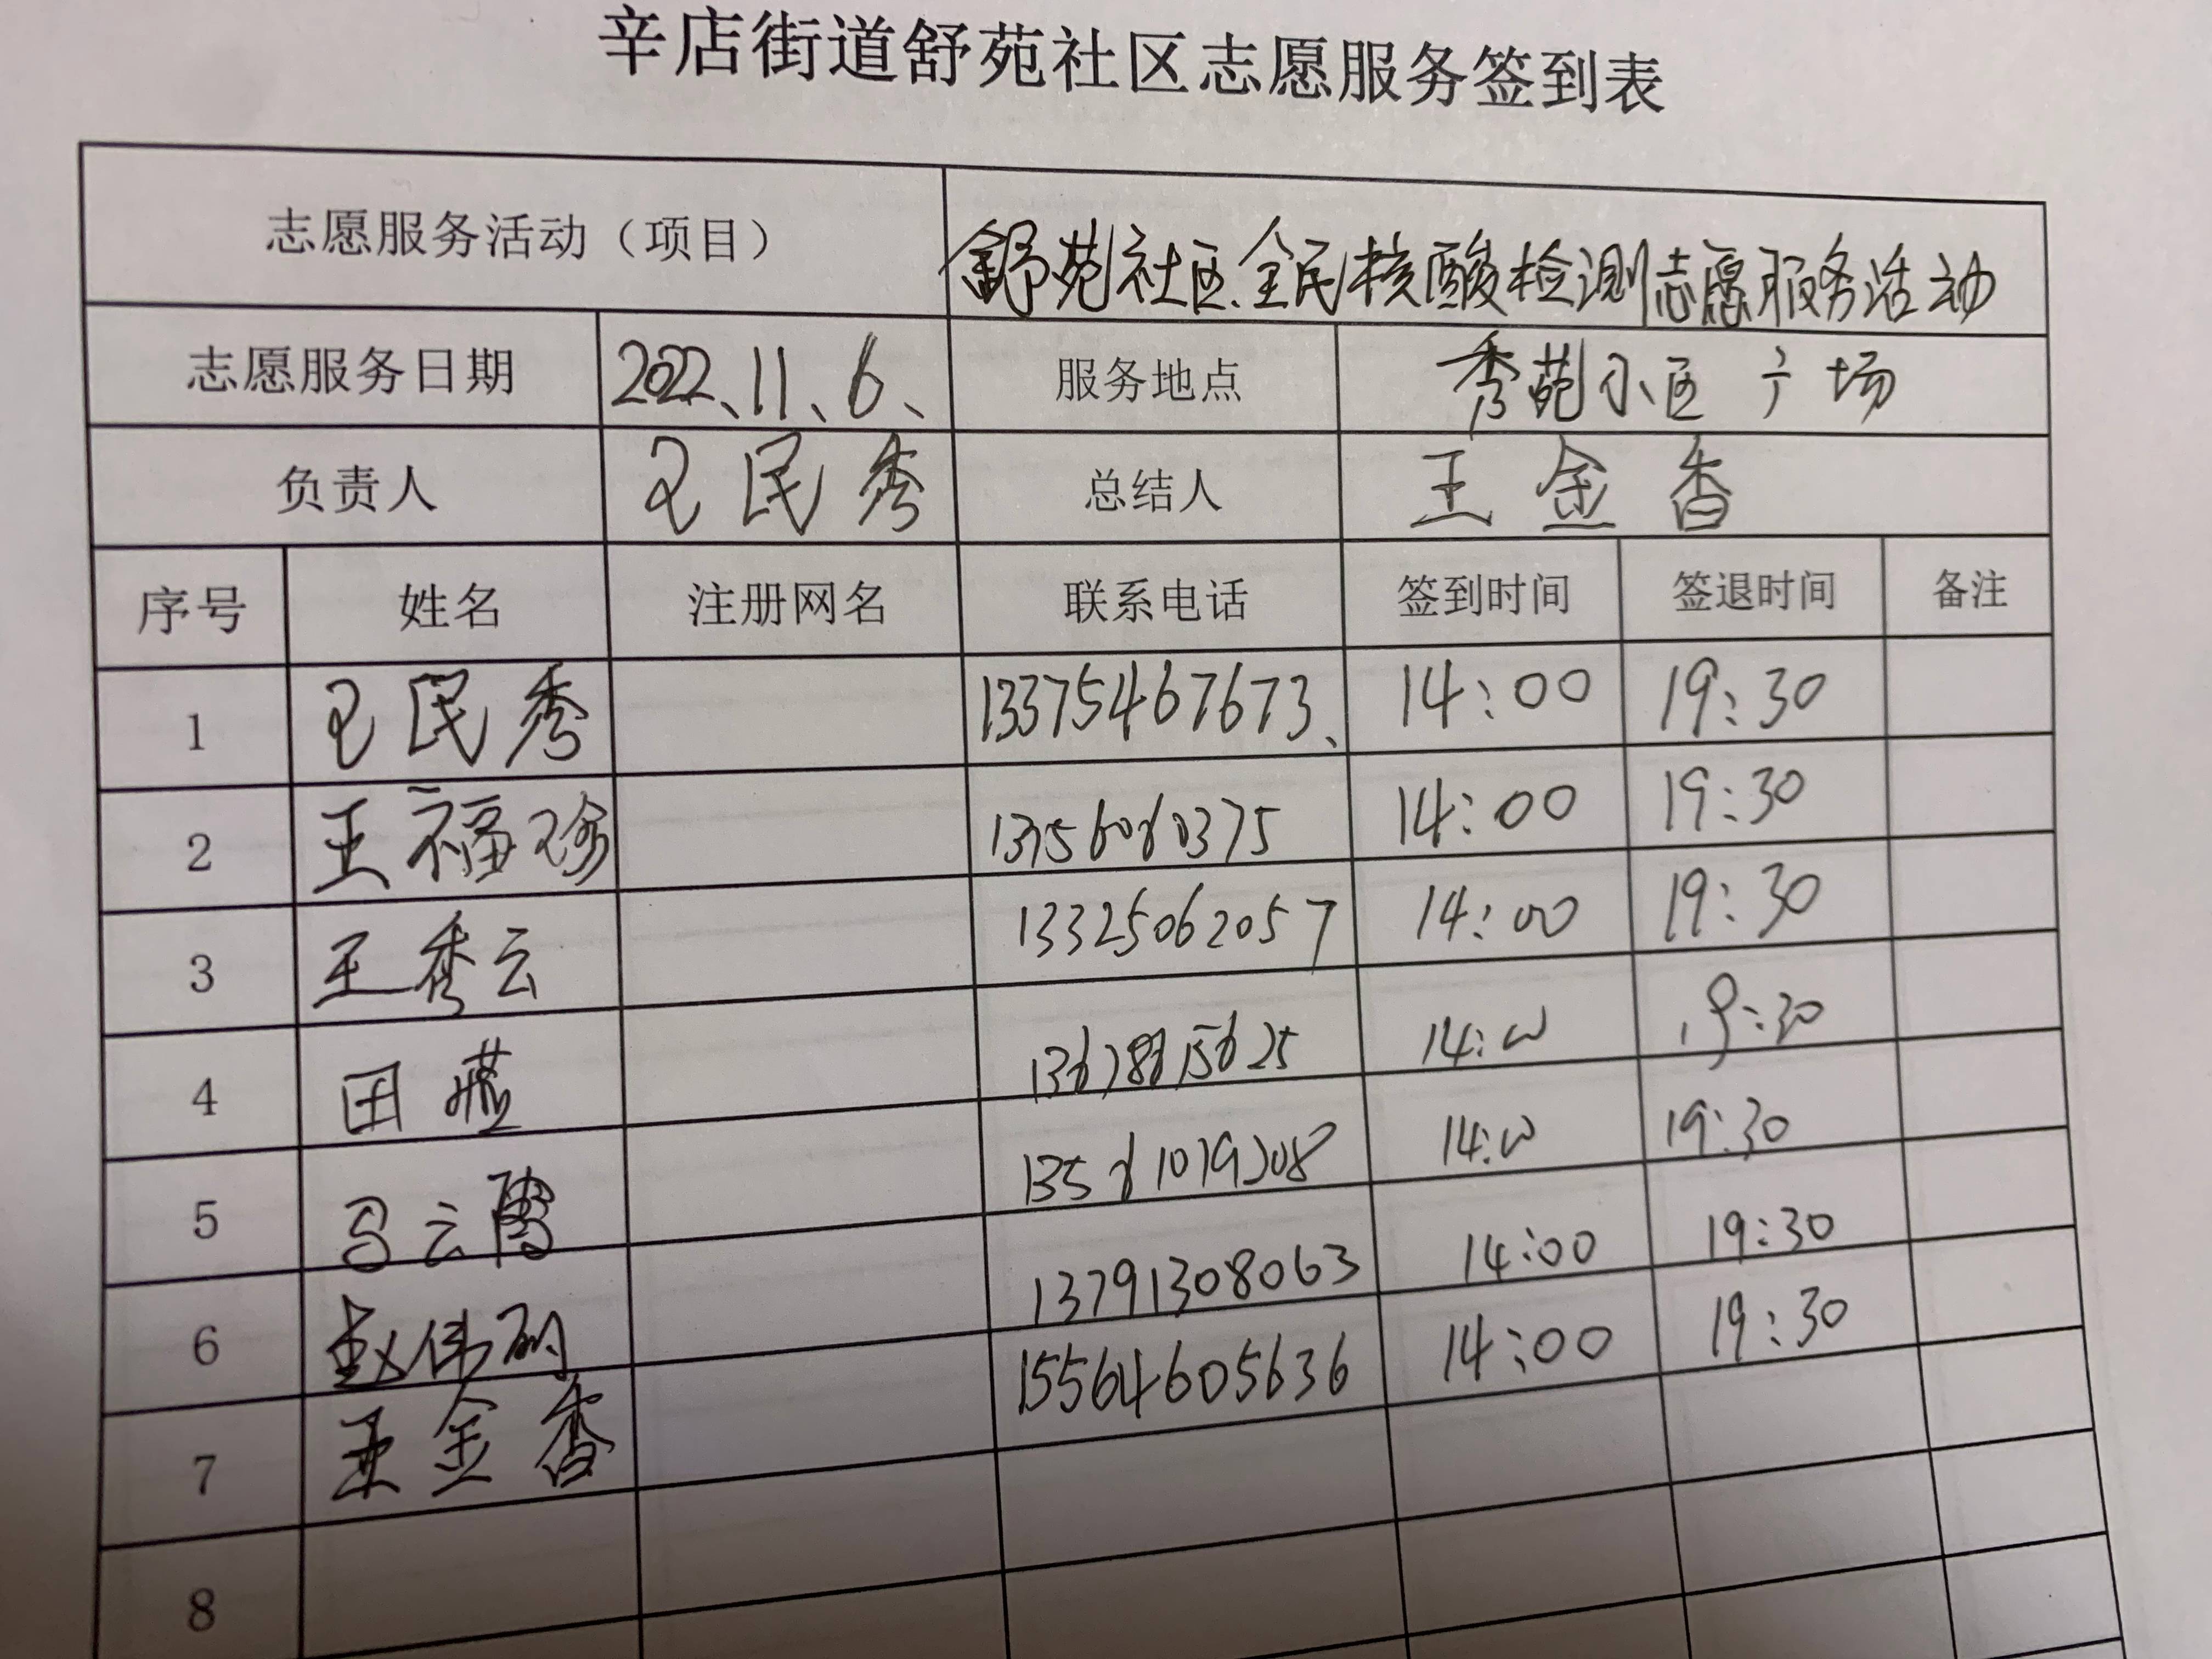 辛店街道舒苑社区志愿服务签到表
志愿服务活动（项目） 舒苑社区全民核酸检测志愿服务活动
志愿服务日期 2022、11、6、 服务地点 秀苑小区广场
负责人 王民秀 总结人 王金香
序号 姓名 注册网名 联系电话 签到时间 签退时间 备注
1 王民秀 13375467673、 14:00 19:30
2 王福珍 14:00 19:30
3 王秀云 13325062057 14:00 19:30
4 田 14:00 19:30
5 云 14:00 19:30
6 赵伟 13791308063 14:00 19:30
7 王金香 15564605636 14:00 19:30
8